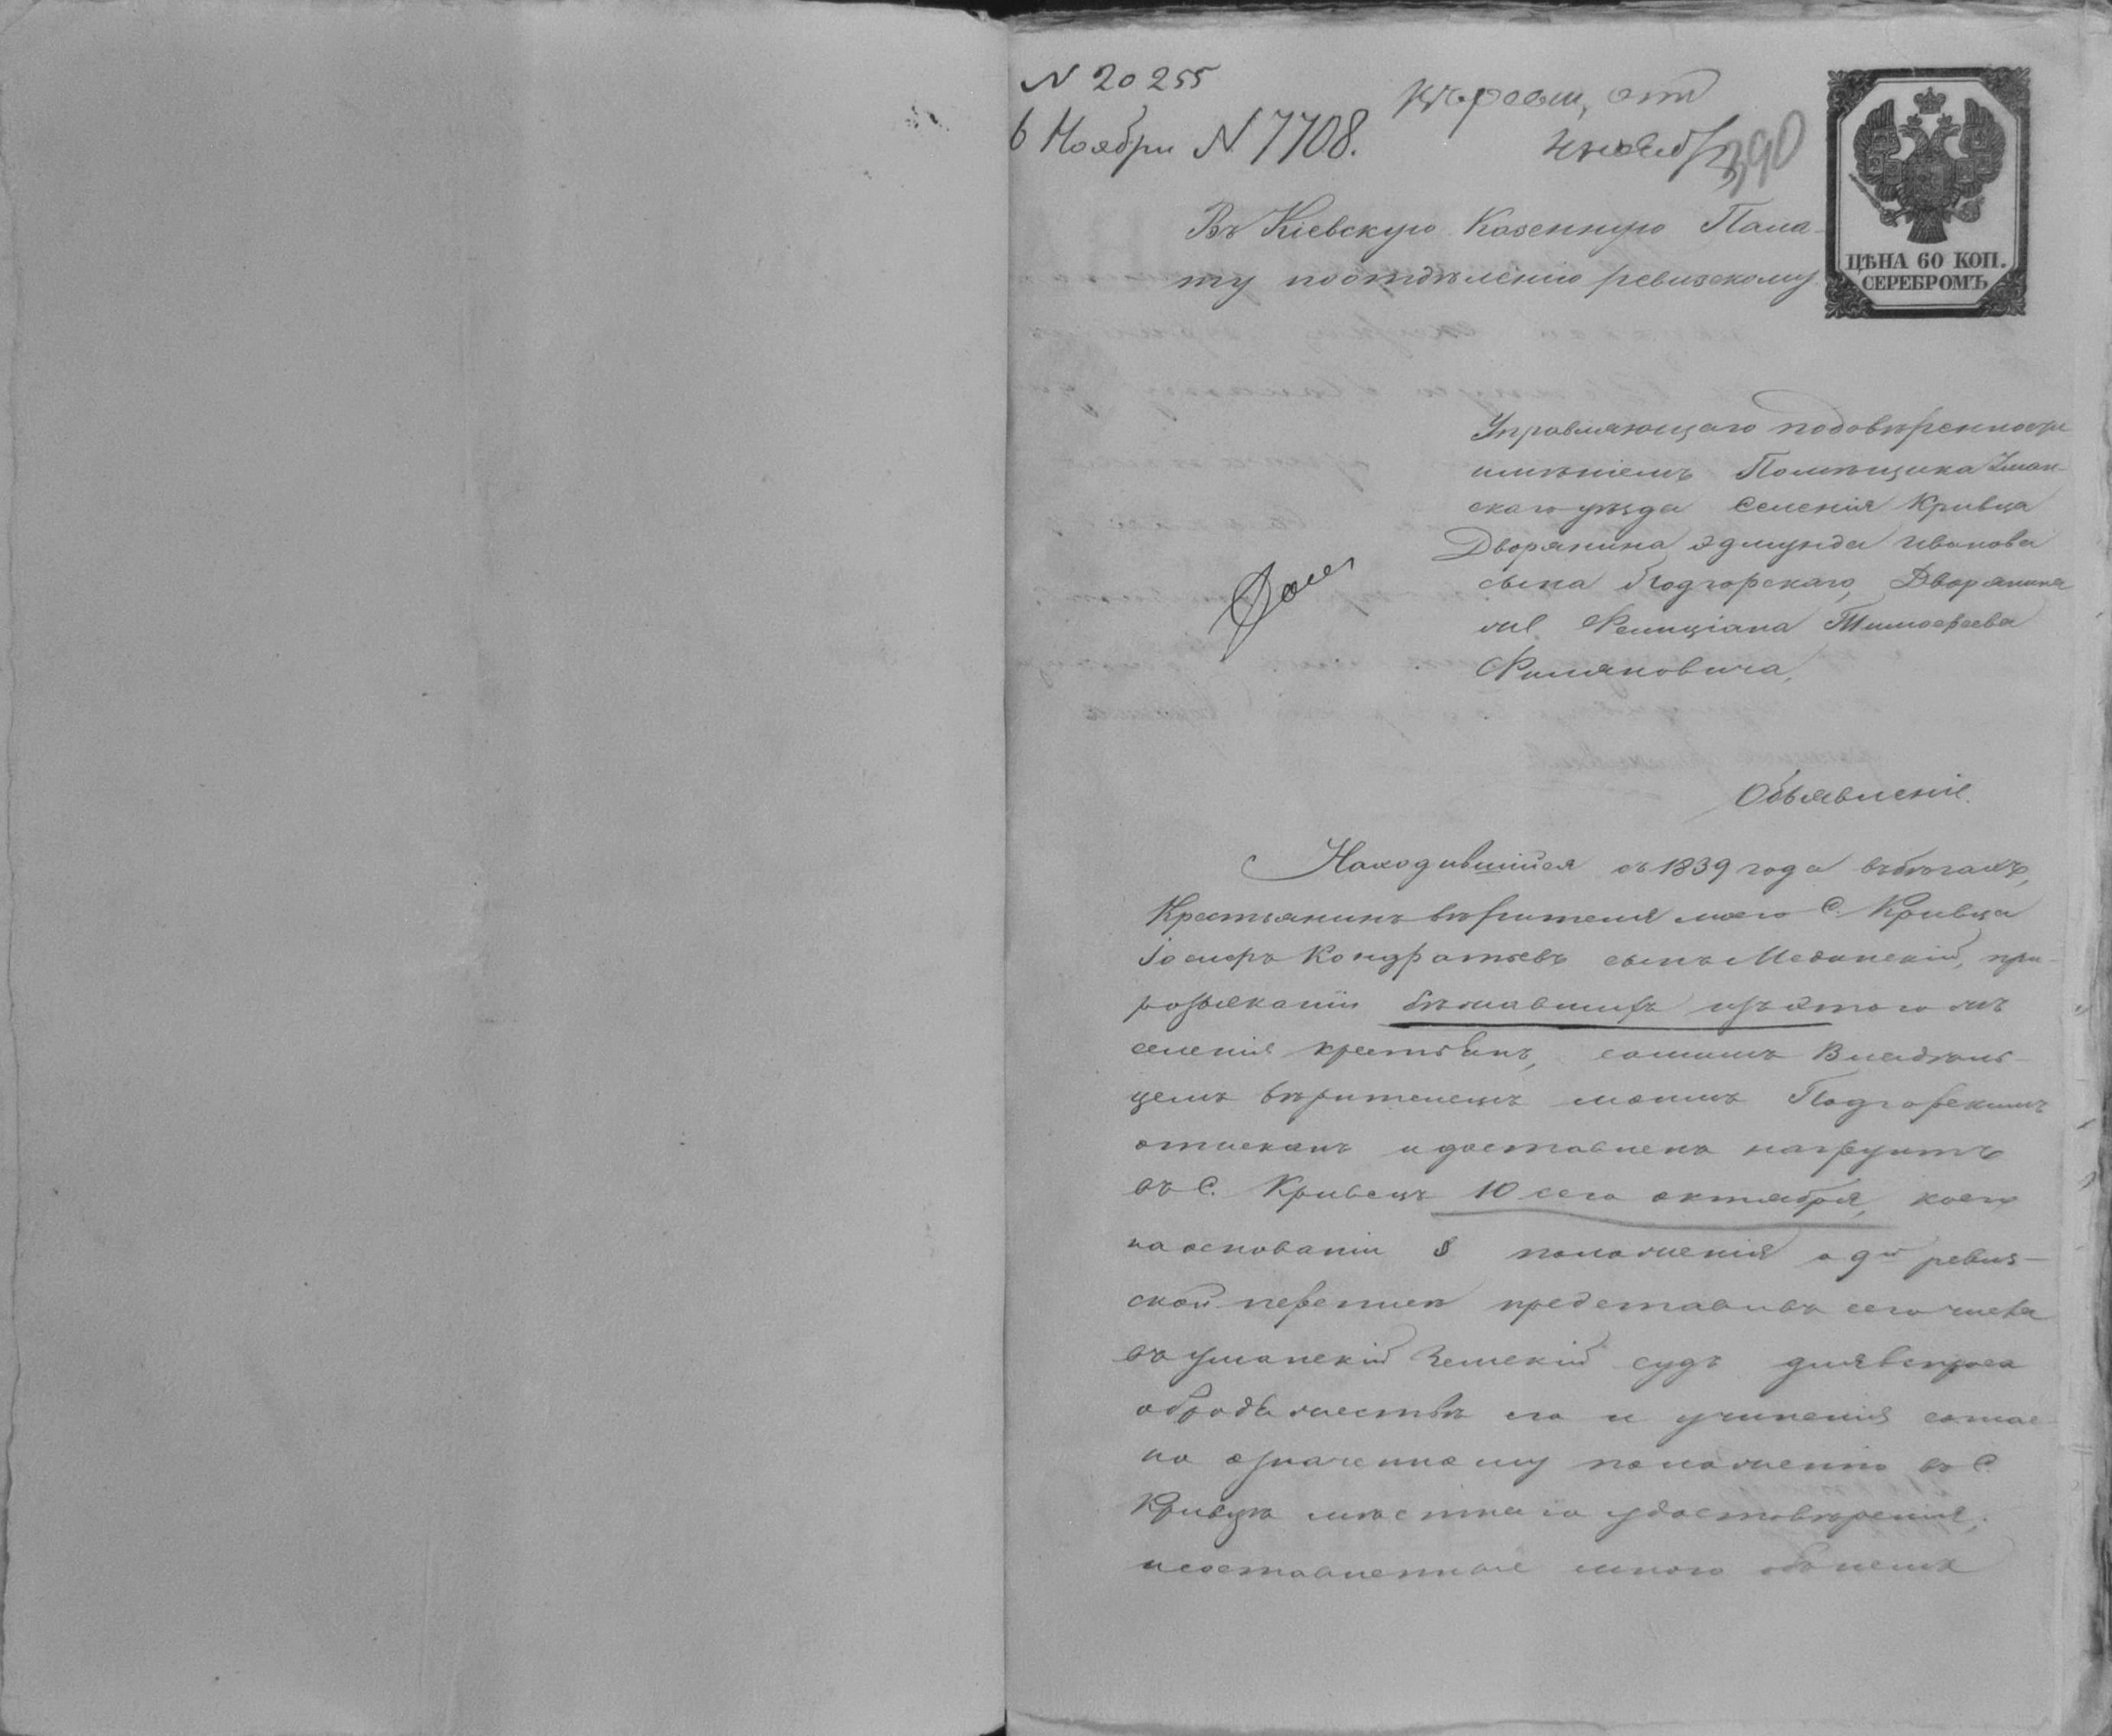 N 20255
6 Ноября N 7708.
390
ЦѢНА 60 КОП.
СЕРЕБРОМЪ
Въ Кіевскую Казенную Пала-
ту поотдѣленію ревизскому
Управляющаго подовѣренности
имѣніемъ Помѣщика Уман-
скаго уѣзда Селенія Кривца
Дворянина Эдмунда Иванова
сына Подгорскаго, Дворянина
же Фелиціана Тимофеева
Объявленіе.
Находившійся съ 1839 года въбѣгахъ,
Крестьянинъ вѣрителя моего С. Кривца
Іосифъ Кондратьевъ сынъ при-
розысканіи бѣжавшихъ изъэтого жъ
селенія крестьянъ, самимъ Владѣль-
цемъ вѣрителемъ моимъ Подгорскимъ
отысканъ идоставленъ
въ С. Кривецъ 10 сего октября, коего
наоснованіи § положенія о 9й ревиз-
ской переписи представивъ сего числа
въ Уманскій Земскій судъ
обродѣ жестьѣ его и учиненія соглас-
но означенному положенію въ С.
Кривцѣ мѣстнаго удостовѣренія,
исоставленные мною обънемъ